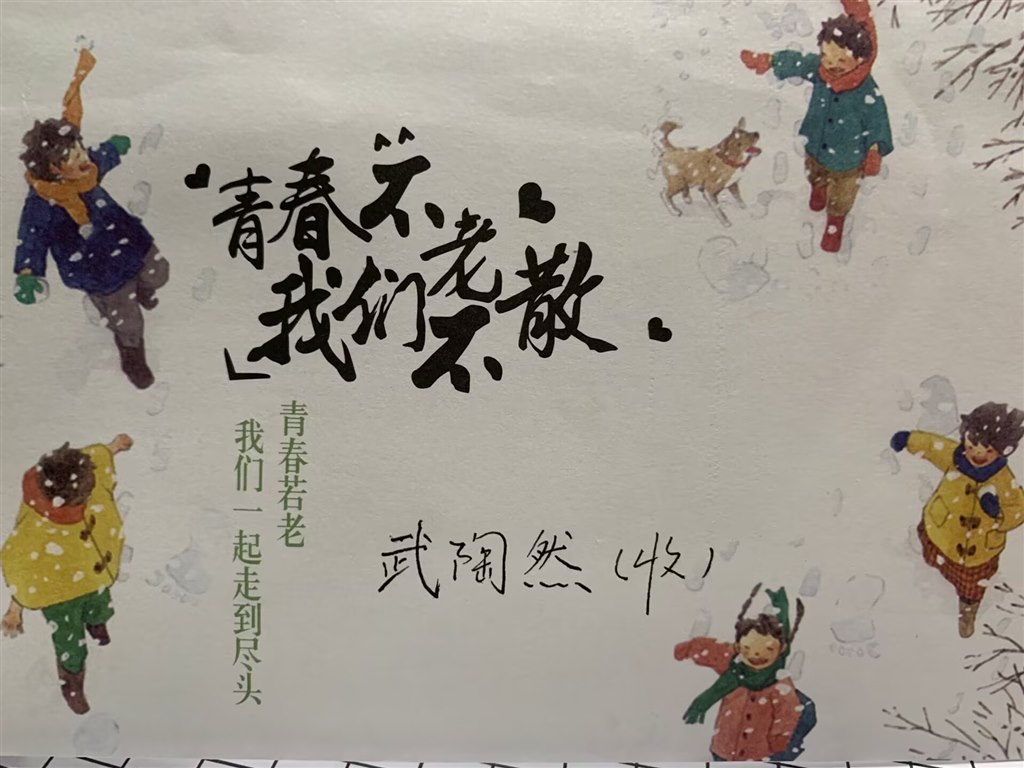 青春不老
我们不散
青春若老
我们一起走到尽头
武陶然(收)